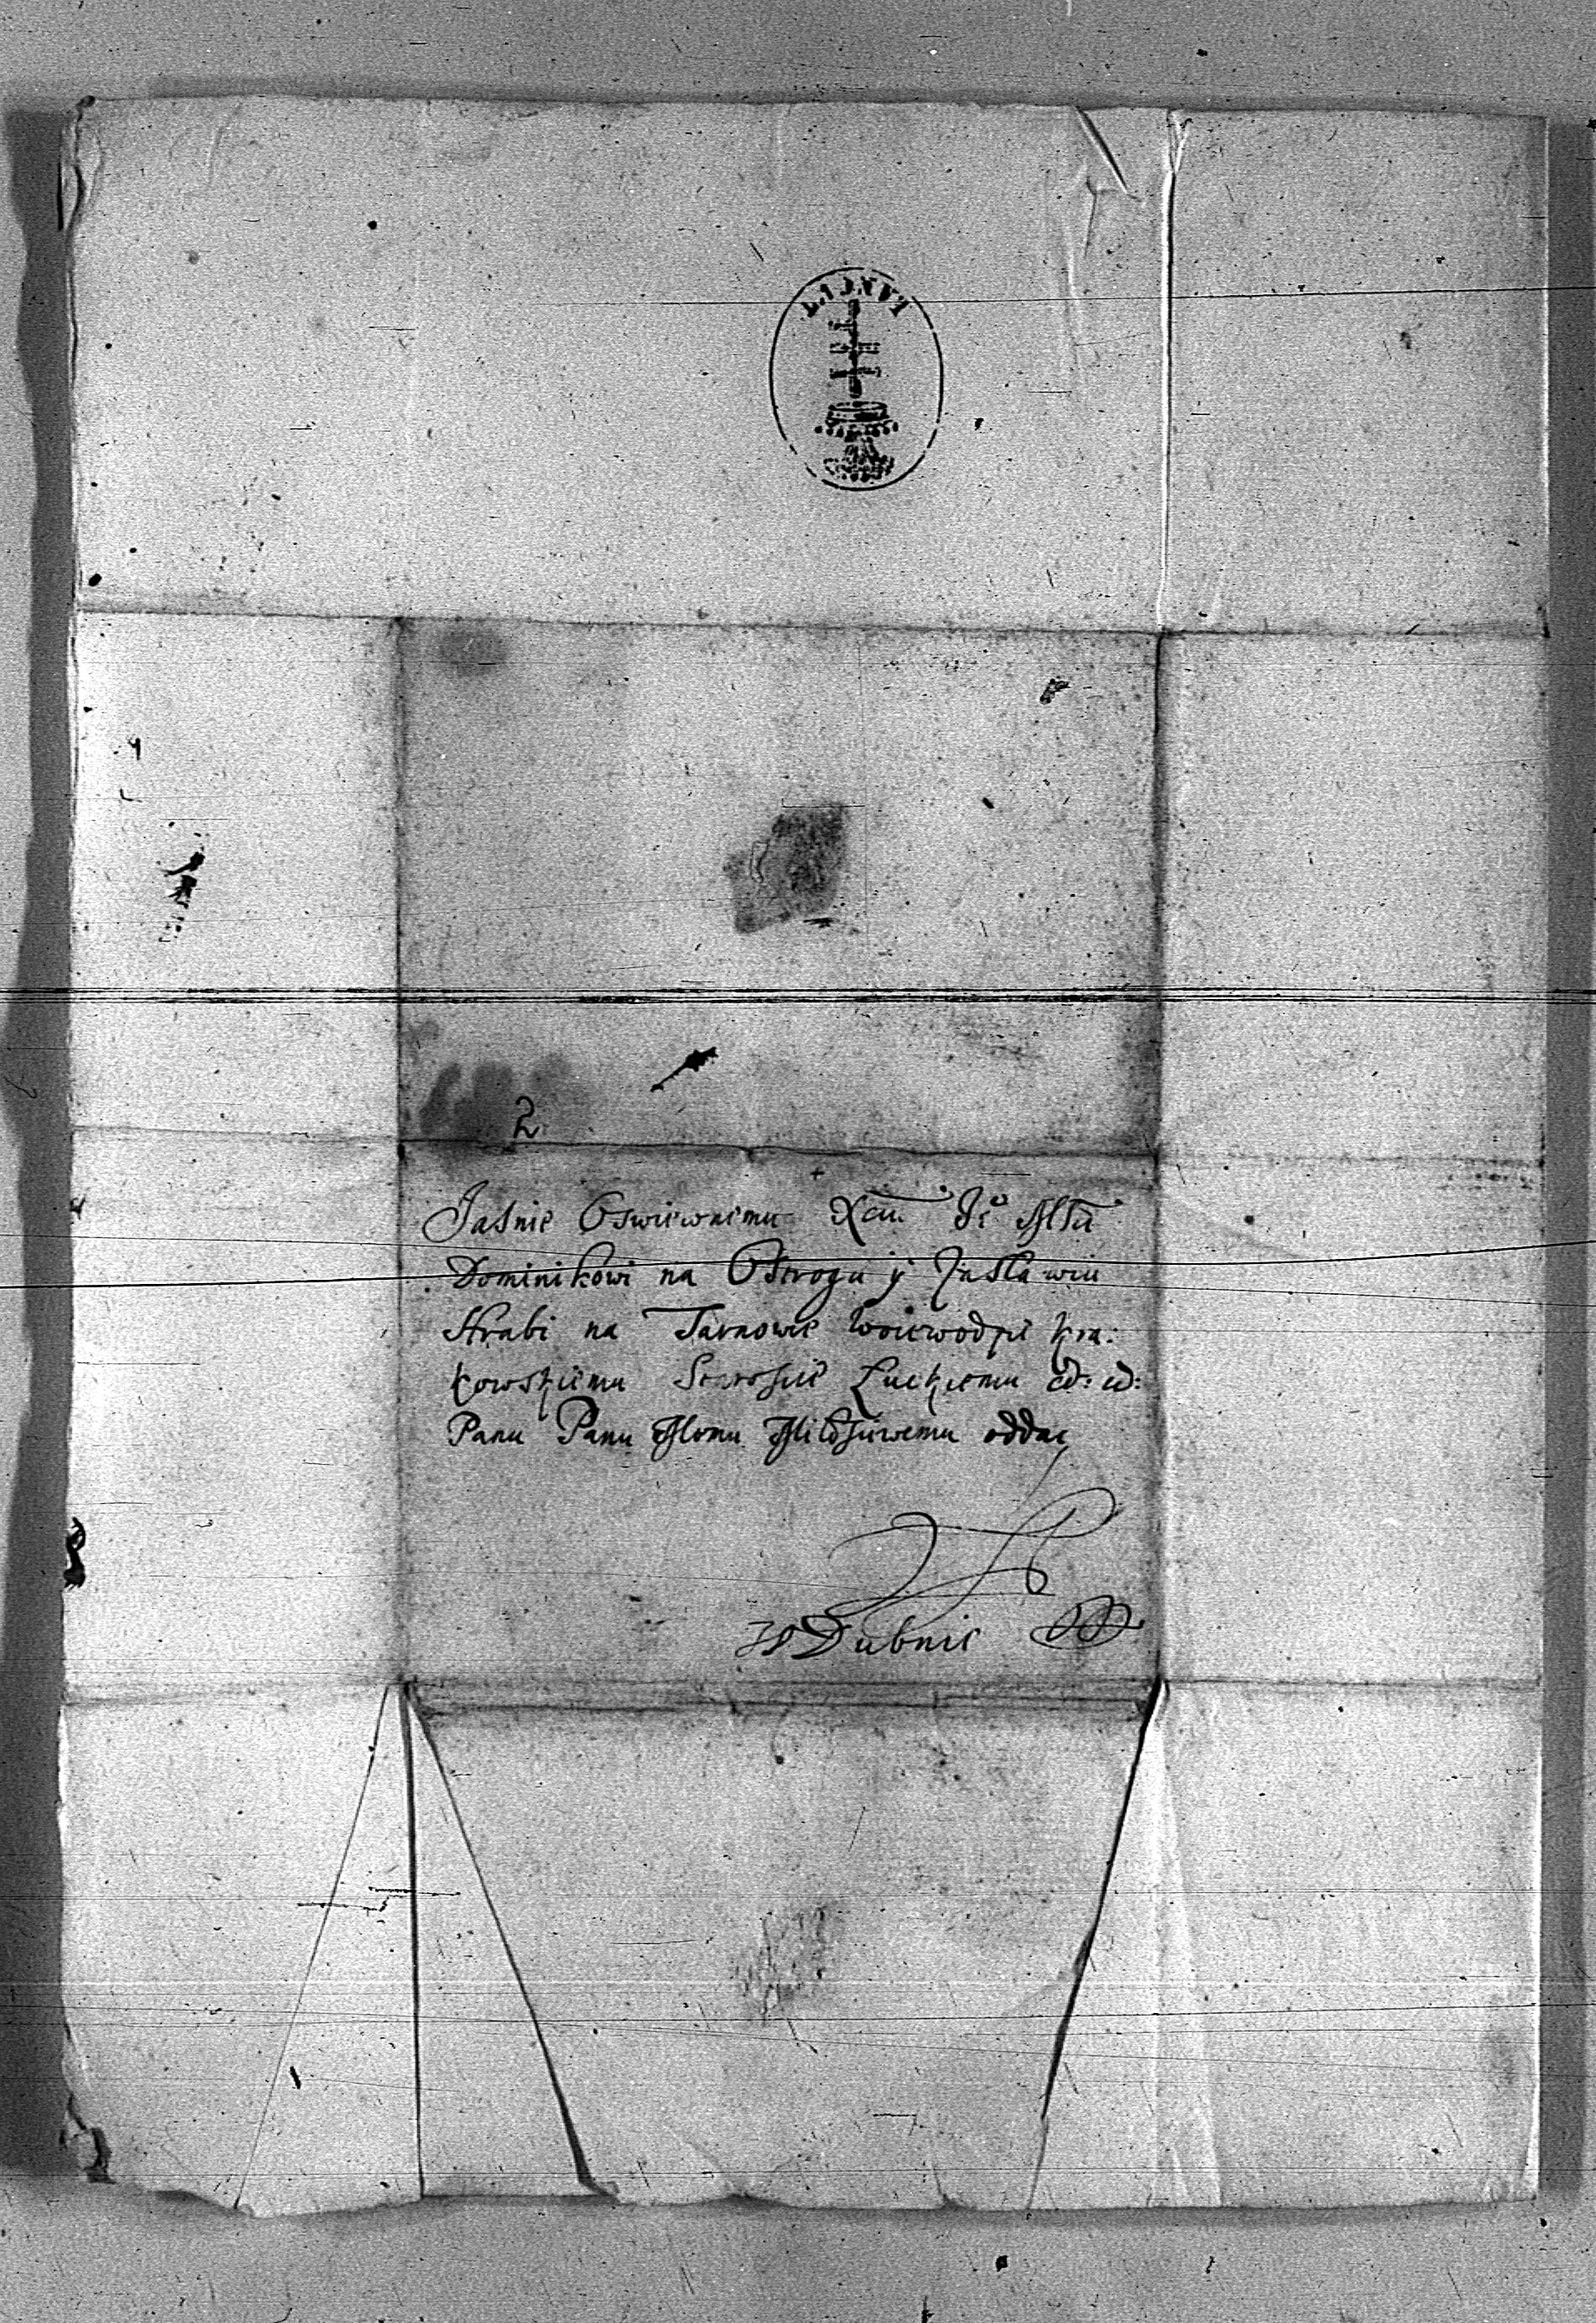 ŁAŃCUT
2
Jasnie Oswieconemu Xciu Je° Mści
Dominikowi na Ostrogu y Zasławiu
Hrabi na Tarnowie Woiewodzie kra:
kowskiemu Staroscie Łuckiemu et: et:
Panu Panu Memu Miłosciwemu oddac
W Dubnie